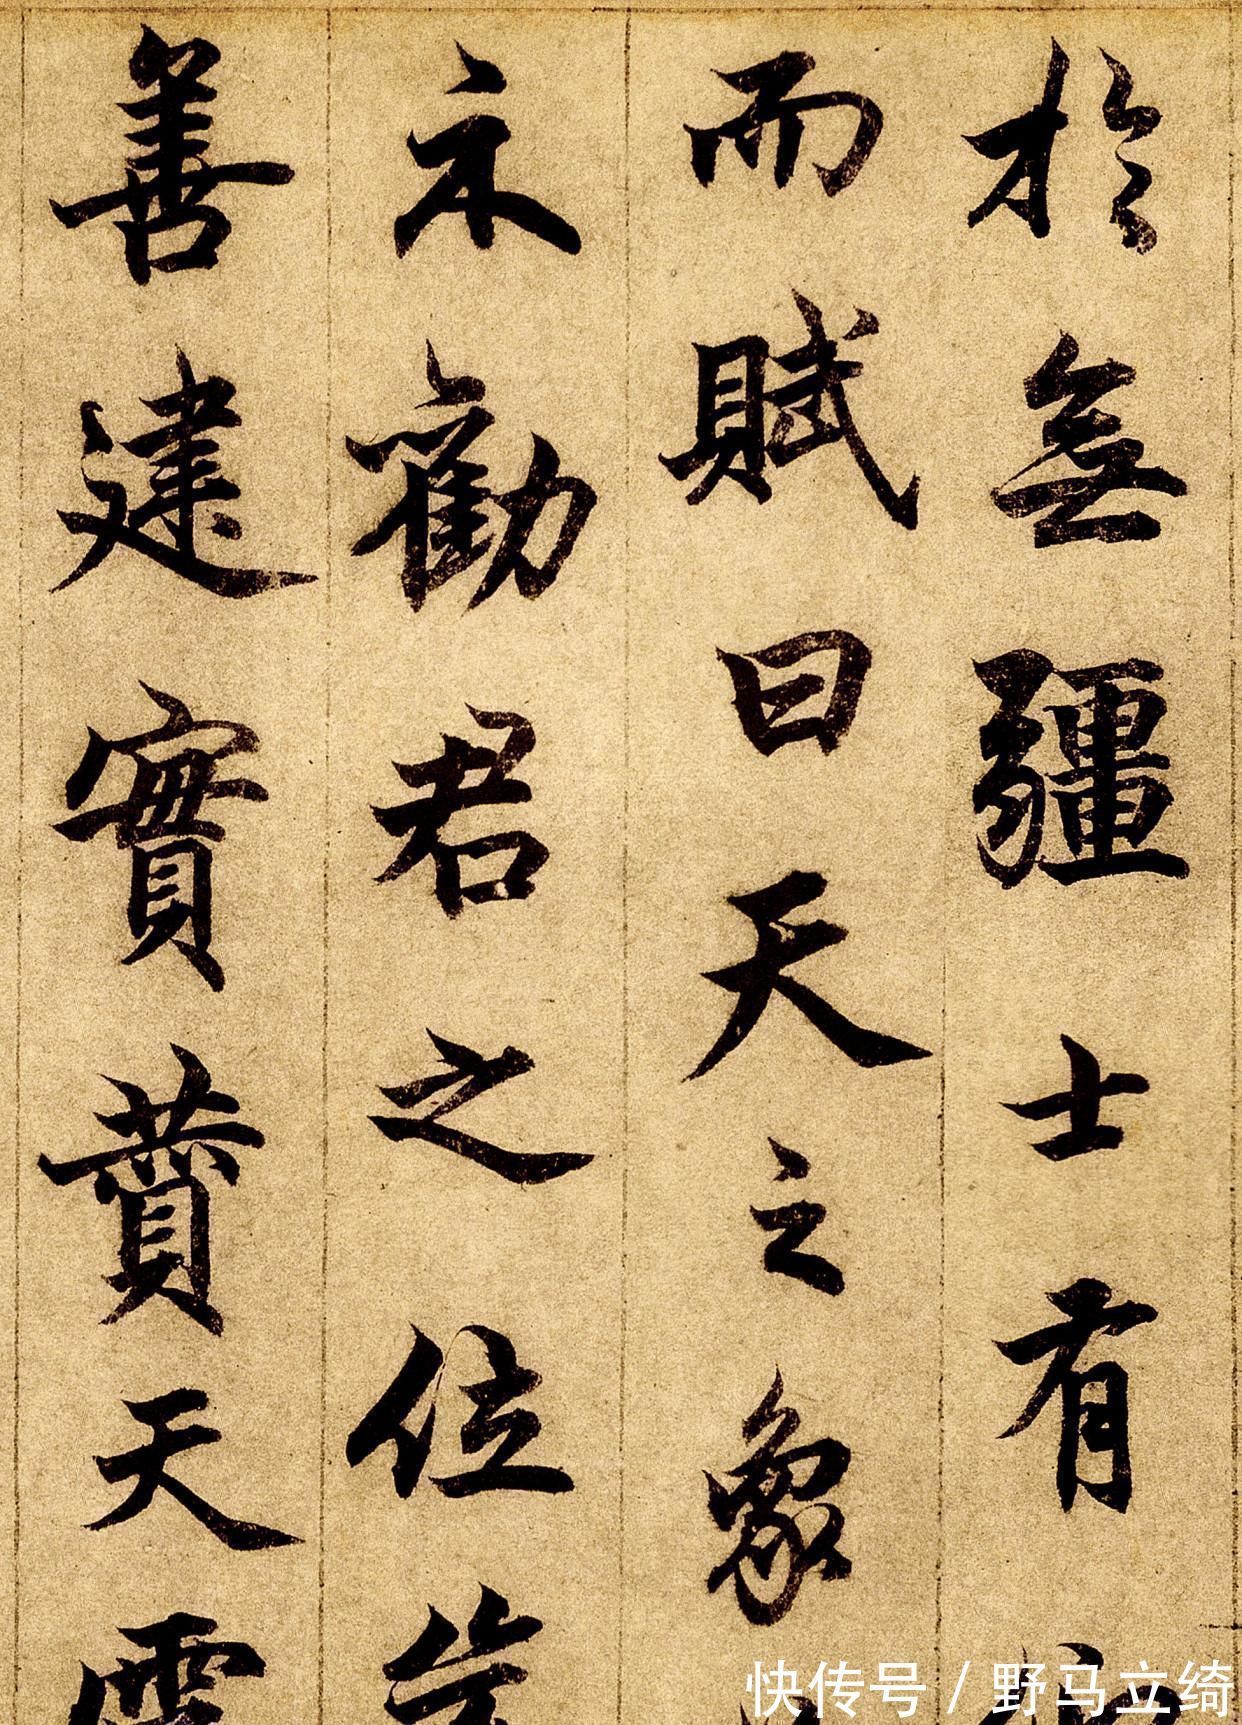 於無疆士有
而賦曰天之象
示勸君之位
善建實賁天
快传号 / 野马立绮